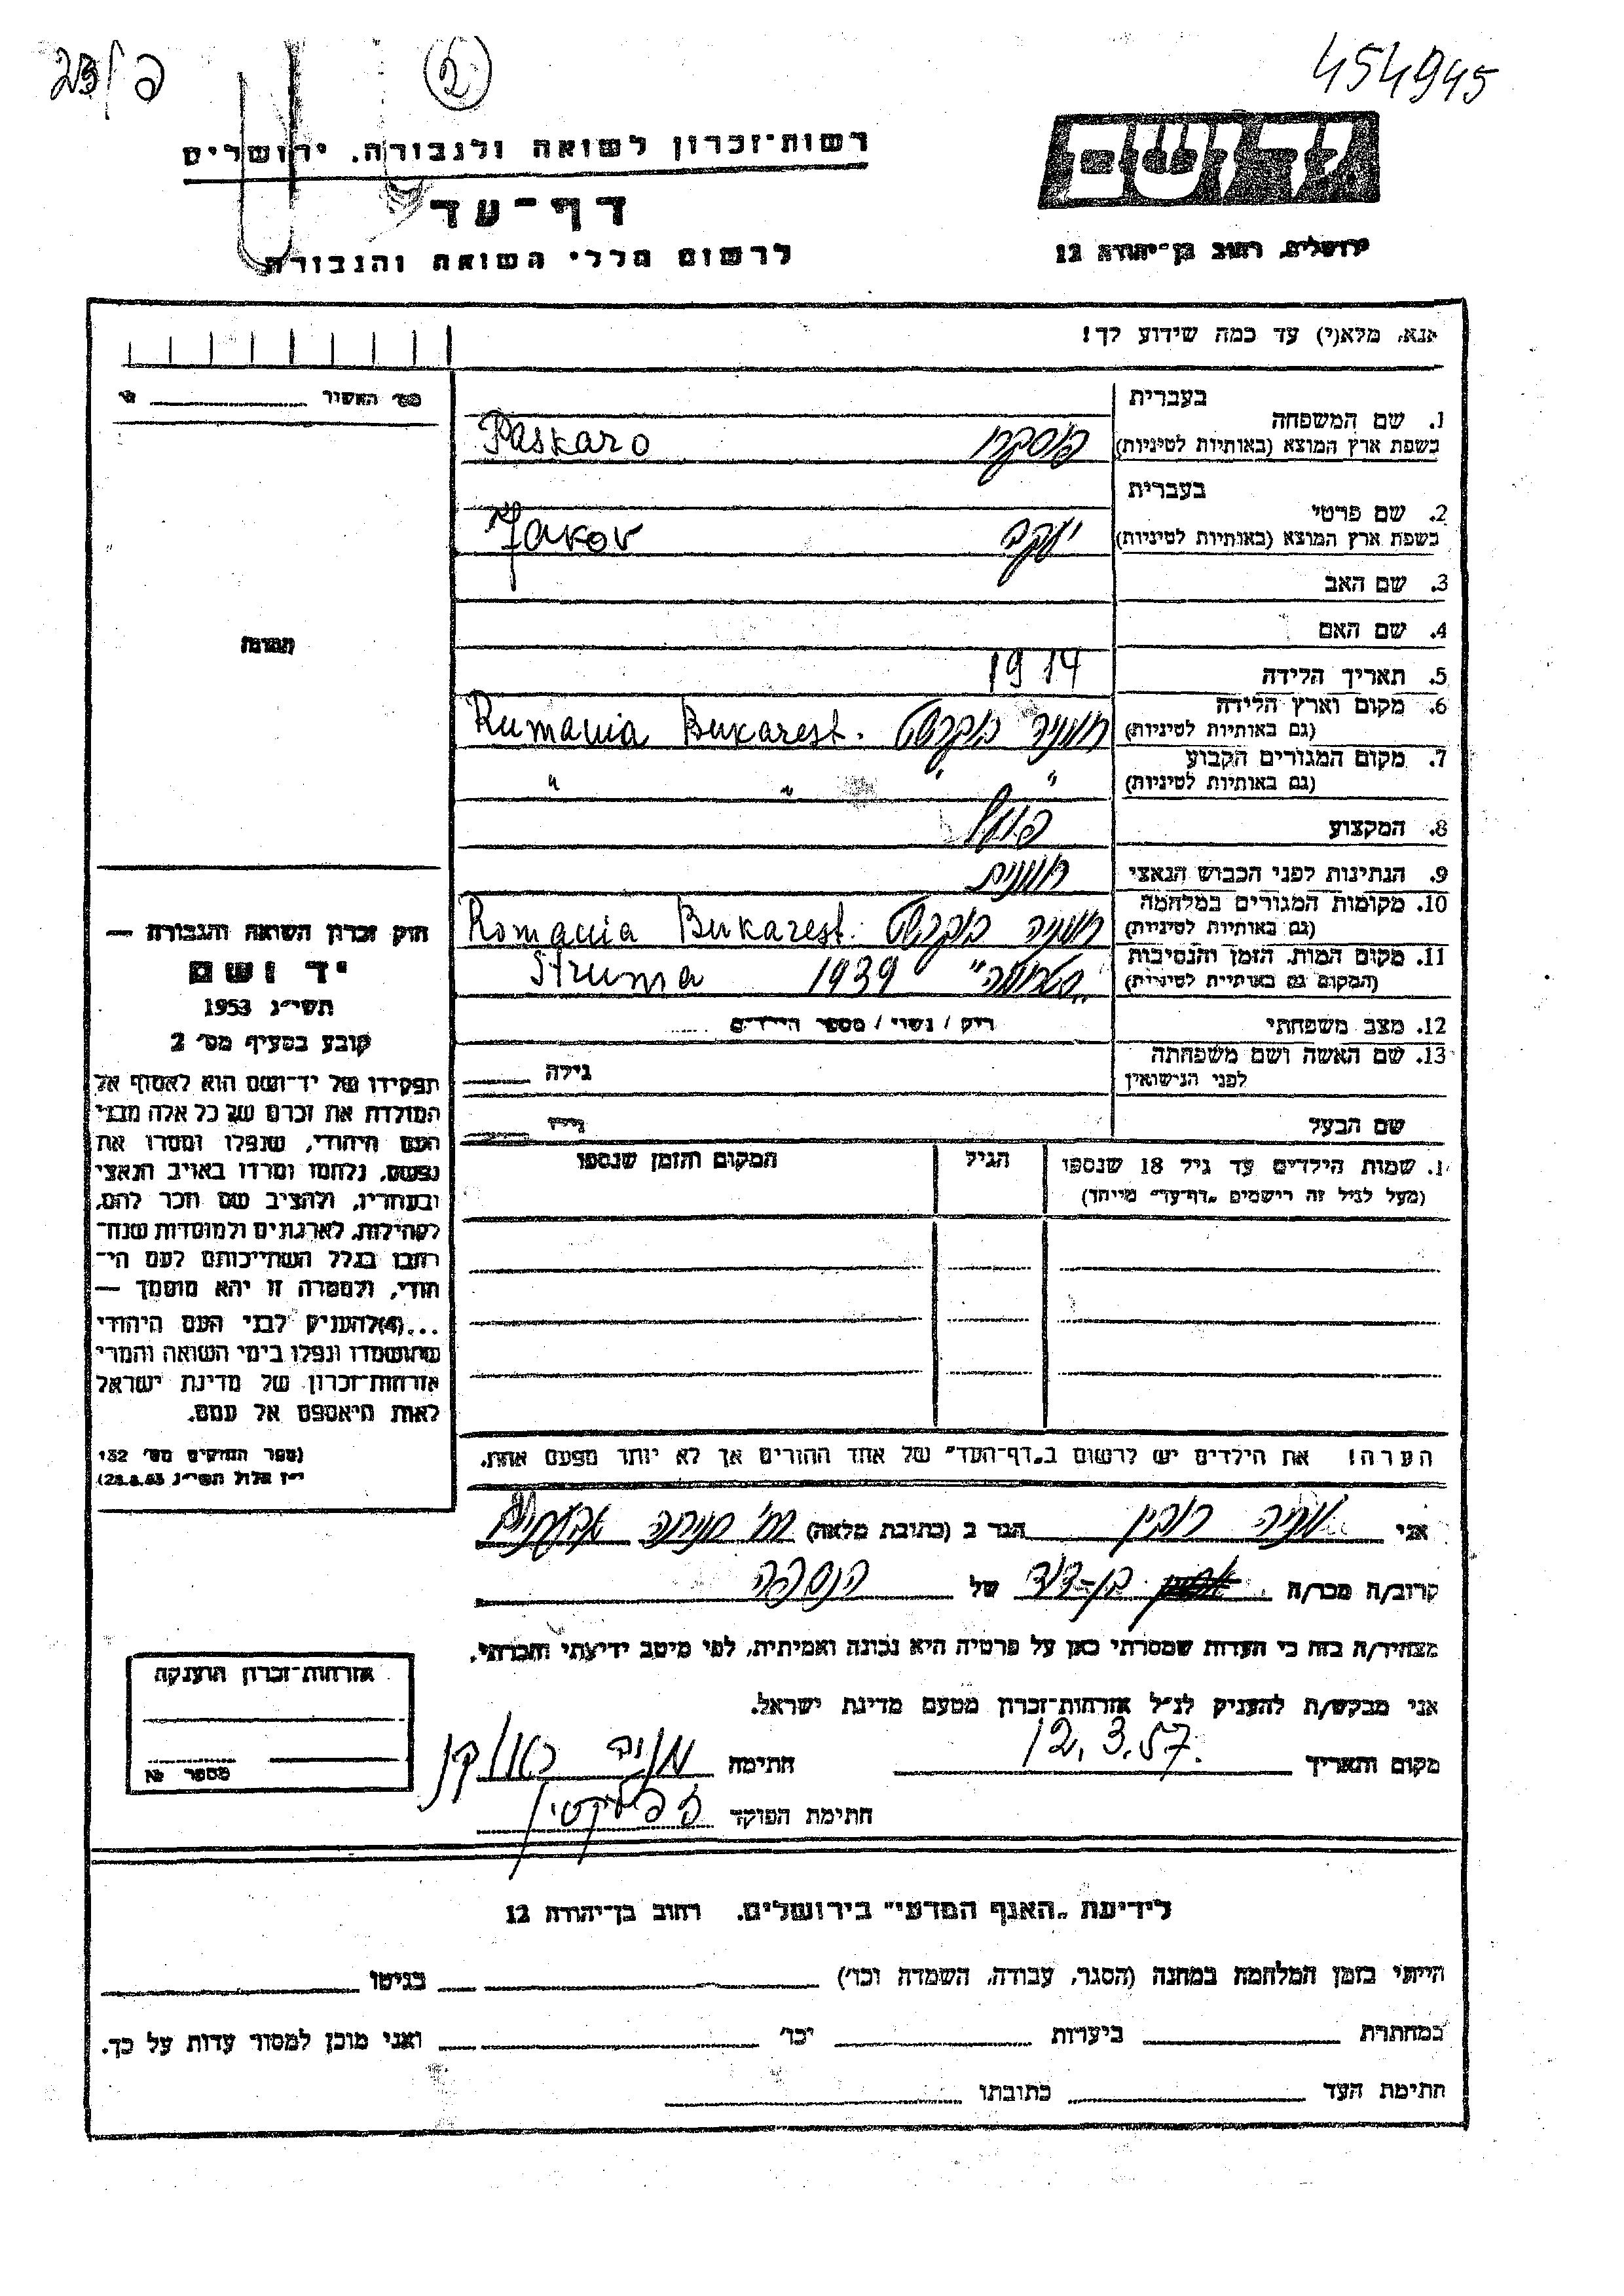 454945
רשות־זכרון לשואה ולגבורה, ירושלים
דף־עד
לרשום חללי השואה והגבורה
יד ושם
ירושלים, רחוב בן־יהודה 12
אנא, מלא(י) עד כמה שידוע לך!
1. שם המשפחה
בעברית
בשפת ארץ המוצא (באותיות לטיניות)
פסקרו Paskaro
2. שם פרטי
בעברית
בשפת ארץ המוצא (באותיות לטיניות)
יעקב Jakov
3. שם האב
4. שם האם
5. תאריך הלידה 1914
6. מקום וארץ הלידה
(גם באותיות לטיניות)
רומניה בוקרשט Rumania Bukarest.
7. מקום המגורים הקבוע
(גם באותיות לטיניות)
" " "
8. המקצוע פועל
9. הנתינות לפני הכבוש הנאצי רומנית
10. מקומות המגורים במלחמה
(גם באותיות לטיניות)
רומניה בוקרשט Romania Bukarest.
11. מקום המות, הזמן והנסיבות
(המקום גם באותיות לטיניות)
"סטרומה" 1939 Struma
12. מצב משפחתי רוק / נשוי / מספר הילדים
13. שם האשה ושם משפחתה
לפני הנישואין
גילה
שם הבעל גילו
1. שמות הילדים עד גיל 18 שנספו
(מעל לגיל זה רישמים "דף־עד" מייחד)
הגיל
המקום והזמן שנספו
הערה! את הילדים יש לרשום ב"דף־העד" של אחד ההורים אך לא יותר מפעם אחת.
חוק זכרון השואה והגבורה —
יד ושם
תשי״ג 1953
קובע בסעיף מס׳ 2
תפקידו של יד־ושם הוא לאסוף אל
המולדת את זכרם של כל אלה מבני
העם היהודי, שנפלו ומסרו את
נפשם, נלחמו ומרדו באויב הנאצי
ובעוזריו, ולהציב שם וזכר להם,
לקהילות, לארגונים ולמוסדות שנח־
רבו בגלל השתייכותם לעם הי־
הודי, ולמטרה זו יהא מוסמך —
...(4) להעניק לבני העם היהודי
שהושמדו ונפלו בימי השואה והמרי
אזרחות־זכרון של מדינת ישראל
לאות היאספם אל עמם.
(ספר החוקים מס׳ 132
י״ז אלול תשי״ג 28.8.53)
אני הגר ב (כתובת מלאה)
קרוב/ה מכר/ה בן-דוד של הנספה
מצהיר/ה בזה כי העדות שמסרתי כאן על פרטיה היא נכונה ואמיתית, לפי מיטב ידיעתי והכרתי.
אני מבקש/ת להעניק לנ״ל אזרחות־זכרון מטעם מדינת ישראל.
מקום ותאריך 12.3.57. חתימה
חתימת הפוקד
אזרחות־זכרון הוענקה
מספר №
לידיעת "האגף המדעי" בירושלים. רחוב בן־יהודה 12
הייתי בזמן המלחמה במחנה (הסגר, עבודה, השמדה וכו׳) בגיטו
במחתרת ביערות וכו׳ ואני מוכן למסור עדות על כך.
חתימת העד כתובתו